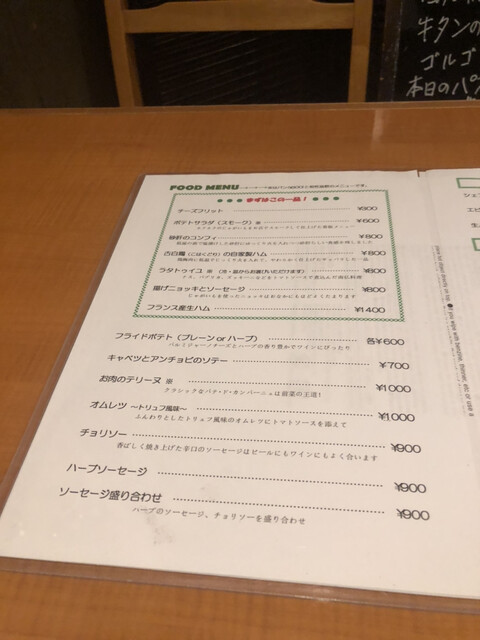 牛タンの
ゴルゴ
本日のパ
FOOD MENU
まずはこの一品！
チーズフリット ¥800
ポテトサラダ（スモーク）※ ¥600
砂肝のコンフィ ¥800
古白鶏（こはくどり）の自家製ハム ¥800
ラタトゥイユ ※ （冷・温からお選びいただけます） ¥800
ナス、パプリカ、ズッキーニなどをトマトソースで煮込んだ南仏料理
揚げニョッキとソーセージ ¥800
じゃがいもを使ったニョッキはお腹にもほどよくたまります
フランス産生ハム ¥1400
フライドポテト（プレーン or ハーブ） 各¥600
パルミジャーノチーズとハーブの香り豊かでワインにぴったり
キャベツとアンチョビのソテー ¥700
お肉のテリーヌ ※ ¥1000
クラシックなパテ・ド・カンパーニュは前菜の王道！
オムレツ ～トリュフ風味～ ¥1000
ふんわりとしたトリュフ風味のオムレツにトマトソースを添えて
チョリソー ¥900
香ばしく焼き上げた辛口のソーセージはビールにもワインにもよく合います
ハーブソーセージ ¥900
ソーセージ盛り合わせ ¥900
ハーブのソーセージ、チョリソーを盛り合わせ
シェ
エビ
生